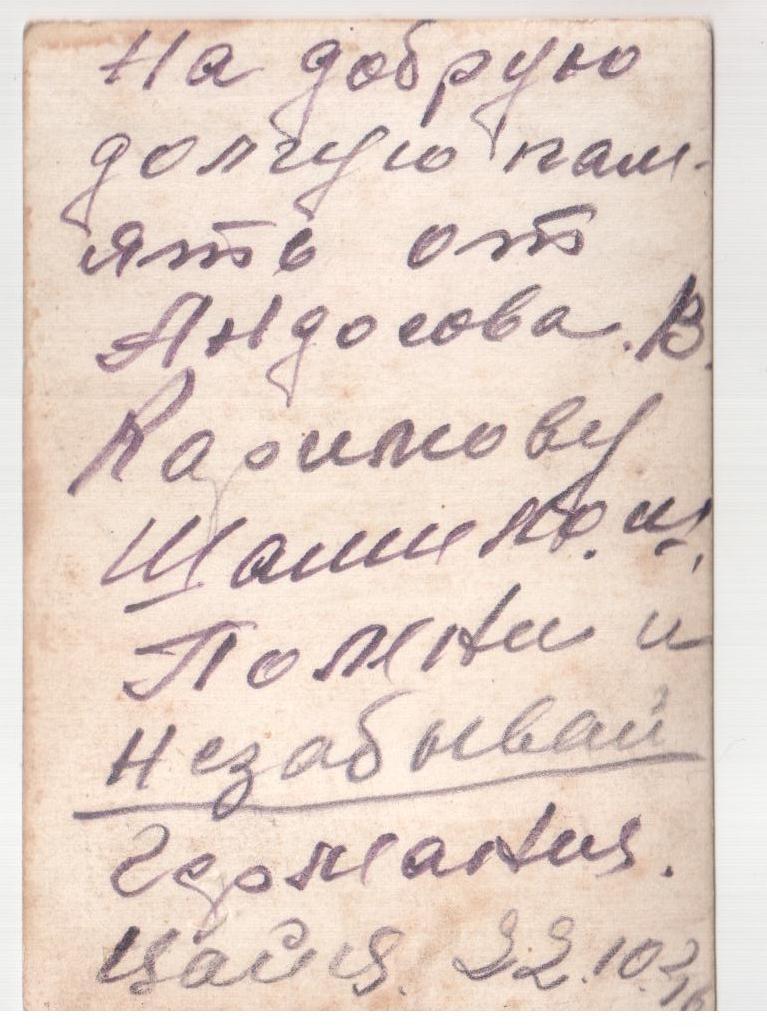 На добрую
долгую пам-
ять от
Андосова. В.
Каримову
Помни и
незабывай
Германия.
Цайц. 22.10.